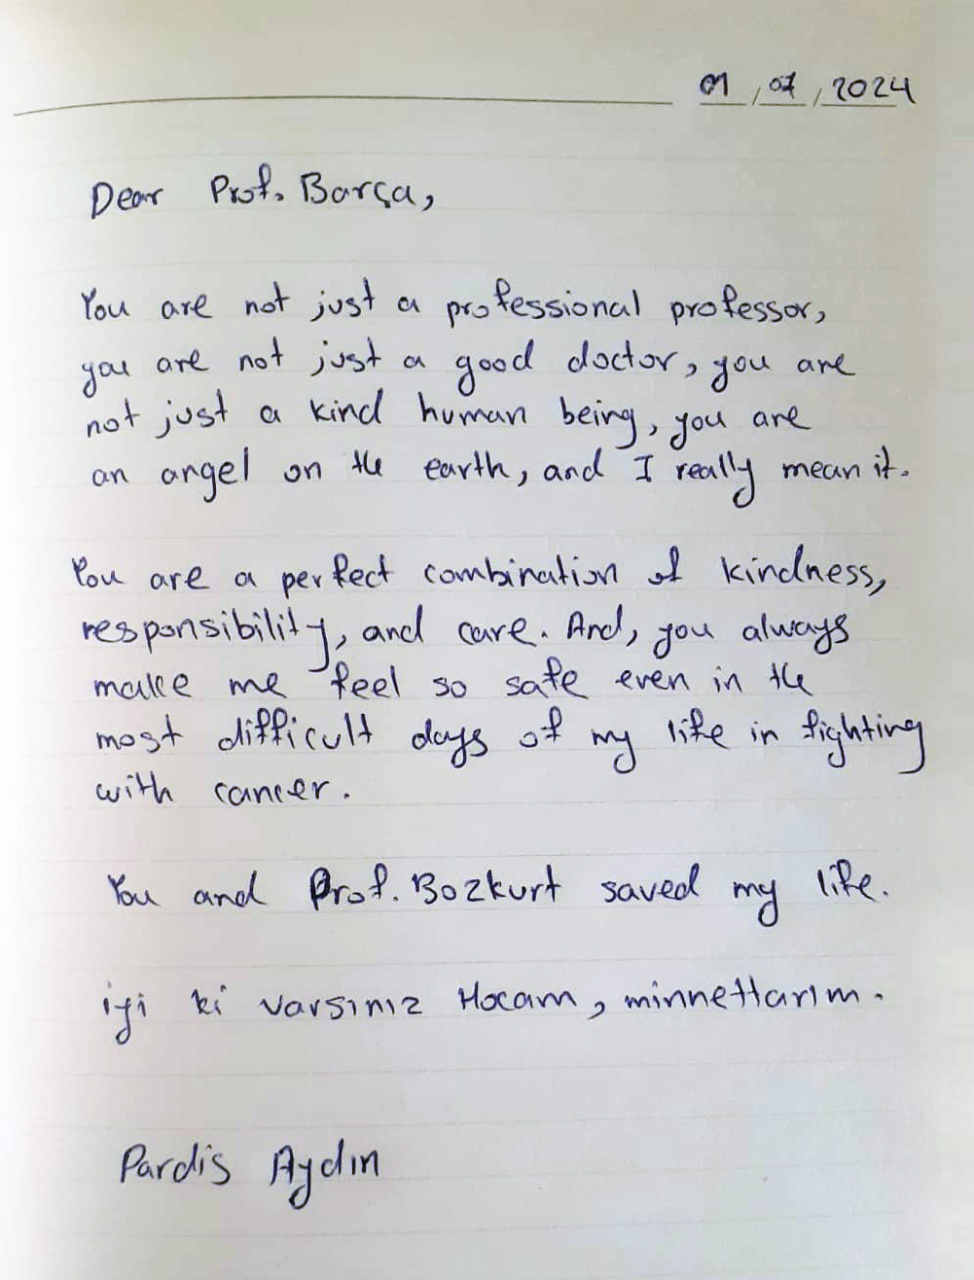 01, 07, 2024
Dear Prof. Barça,
You are not just a professional professor,
you are not just a good doctor, you are
not just a kind human being, you are
an angel on the earth, and I really mean it.
You are a perfect combination of kindness,
responsibility, and care. And, you always
make me feel so safe even in the
most difficult days of my life in fighting
with cancer.
You and Prof. Bozkurt saved my life.
iyi ki varsınız Hocam, minnettarım.
Pardis Aydın